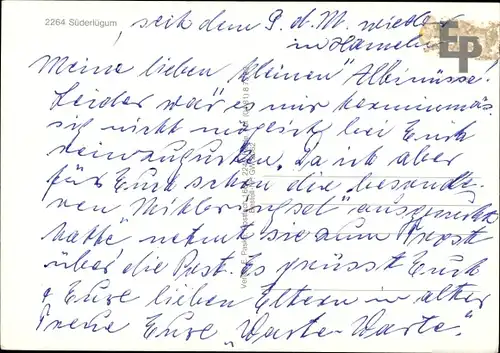 2264 Süderlügum
, seit dem 9. d. M. wieder
in Hameln
Meine lieben "kleinen" Albinüsse.
Leider war es mir terminmä-
sig nicht möglich bei Euch
reinzugucken. Da ich aber
für Euch schon die besonde-
ren "Mitbringsel" ausgesucht
hatte, nehmt sie zum Trost
über die Post. Es grüsst Euch
& Eure lieben Eltern in alter
Treue Eure "Warte-Warte".